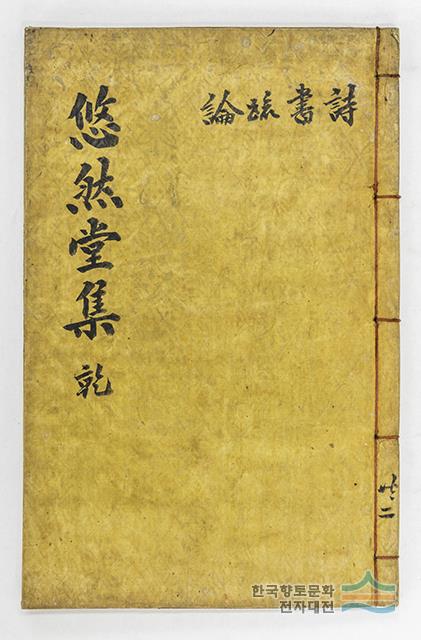 悠然堂集 乾
詩書疏論
共二
한국향토문화
전자대전